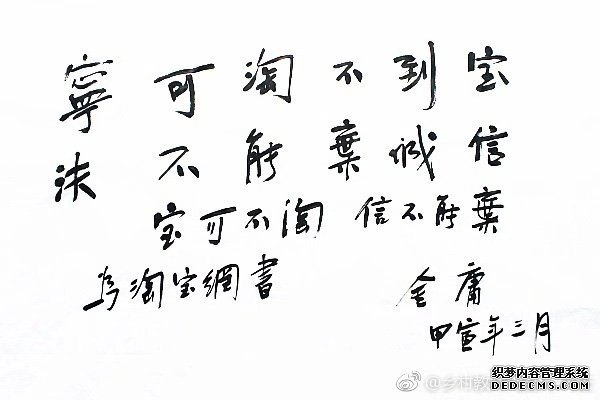 寧可淘不到宝
决不能棄诚信
宝可不淘 信不能棄
为淘宝網書
金庸
甲 年三月
@乡村教
织梦内容管理系统
DEDECMS.COM